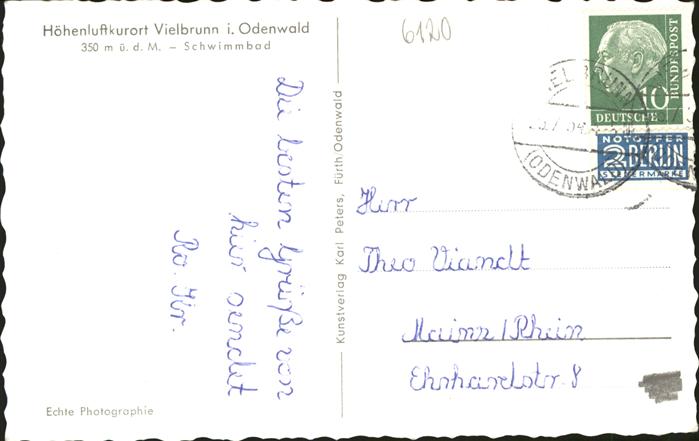 Höhenluftkurort Vielbrunn i. Odenwald
350 m ü. d. M. – Schwimmbad
6120
Die besten Grüße von
hier sendet
Echte Photographie
Kunstverlag Karl Peters, Fürth/Odenwald
10
DEUTSCHE
BUNDESPOST
NOTOPFER
2 BERLIN
STEUERMARKE
(ODENWALD)
Herr
Theo Viandt
Mainz/Rhein
Ehrhardstr. 8